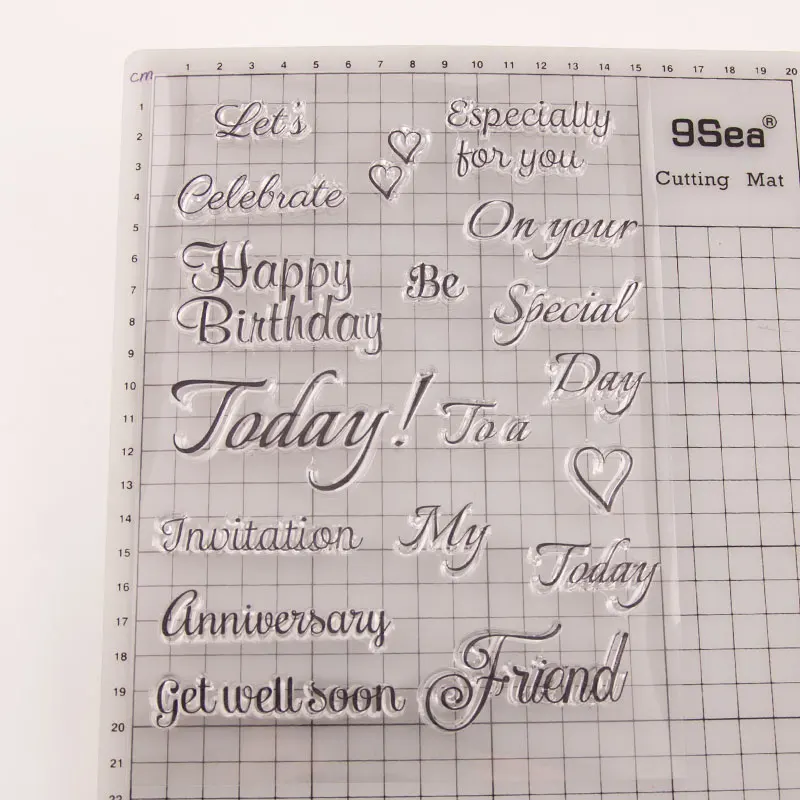 1 2 3 4 5 6 7 8 9 10 11 12 13 14 15 16 17 18 19 20
cm
1
2
3
4
5
6
7
8
9
10
11
12
13
14
15
16
17
18
19
20
21
22
9Sea®
Cutting Mat
Let's
Celebrate
Happy
Birthday
Today!
Invitation
Anniversary
Get well soon
Be
To a
My
Especially
for you
On your
Special
Day
Today
Friend